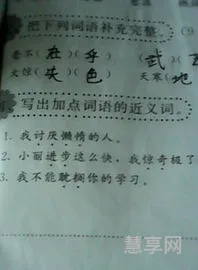 把下列词语补充完整。(9
毫不(在)(乎) 武
大惊(失)(色) 天寒(地
写出加点词语的近义词。
1. 我讨厌懒惰的人。
2. 小丽进步这么快，我惊奇极了
3. 我不能耽搁你的学习。
慧享网